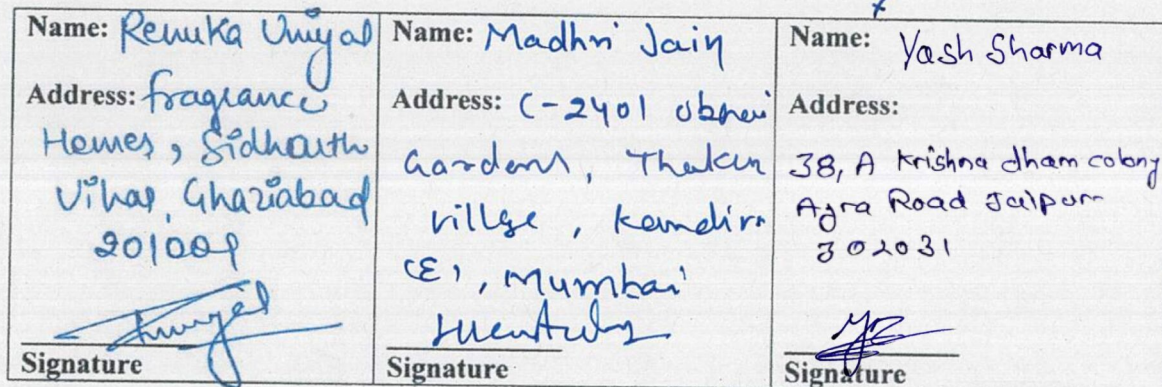 Name: Renuka Uniyal
Address: fragrance
Homes, Sidharth
Vihar, Ghaziabad
201009
Signature
Name: Madhri Jain
Address: C-2401 obnoi
Gardens, Thakur
villge, Kandivr
(E), Mumbai
Signature
Name: Yash Sharma
Address:
38, A Krishna dham colony
Agra Road Jaipur
302031
Signature